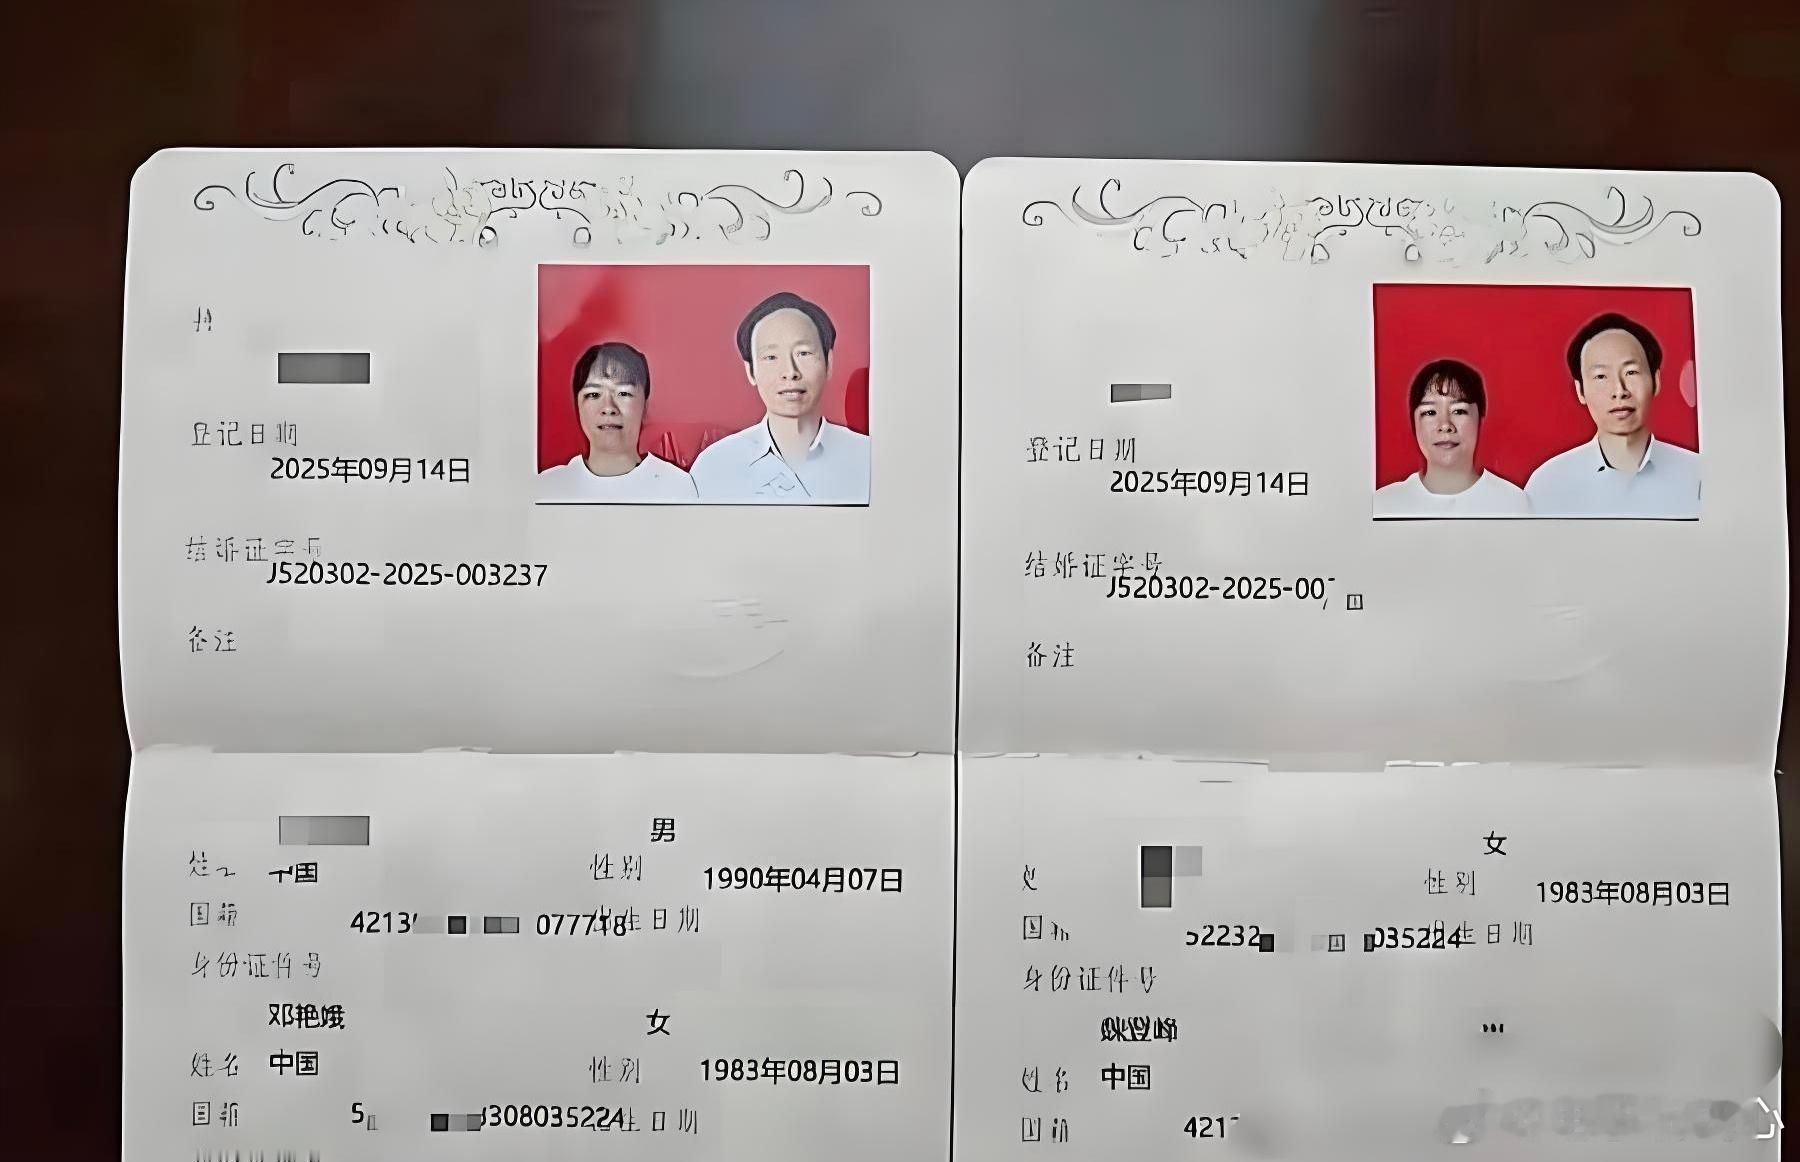 登记日期
2025年09月14日
结婚证字号
J520302-2025-003237
备注
男
中国
性别
1990年04月07日
国籍
4213
077718
出生日期
身份证件号
邓艳娥
女
姓名
中国
性别
1983年08月03日
国籍
5
308035224
出生日期
登记日期
2025年09月14日
结婚证字号
J520302-2025-00
备注
女
性别
1983年08月03日
国籍
52232
035224
出生日期
身份证件号
姓名
中国
国籍
421